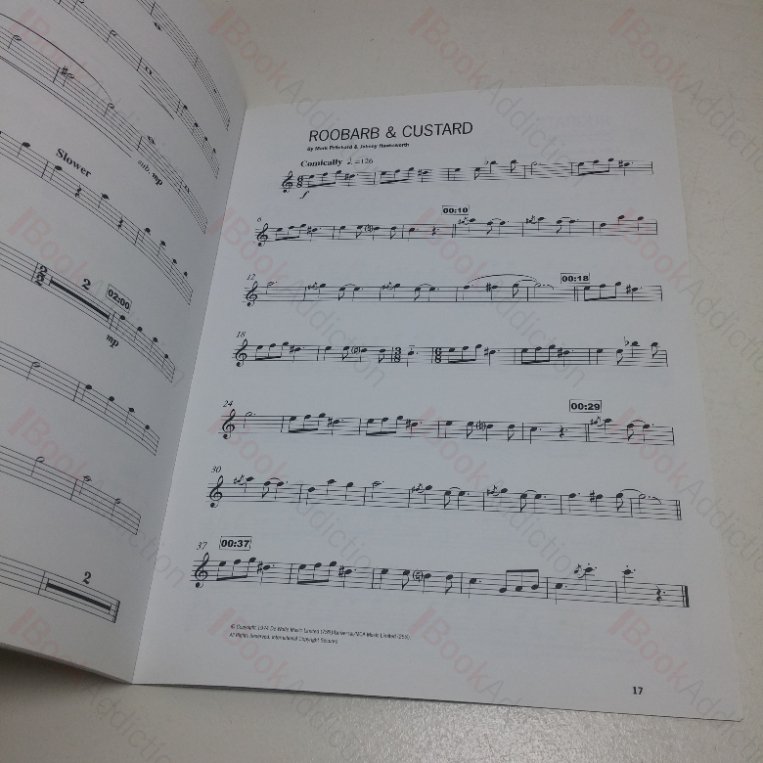 Slower
sub. mp
2
2
2
02:00
mp
2
ROOBARB & CUSTARD
By Mark Pritchard & Johnny Hawksworth
Comically =126
6
8
f
6
00:10
12
00:18
18
3
8
6
8
24
00:29
30
37
00:37
All Rights Reserved. International Copyright Secured.
17
BookAddiction